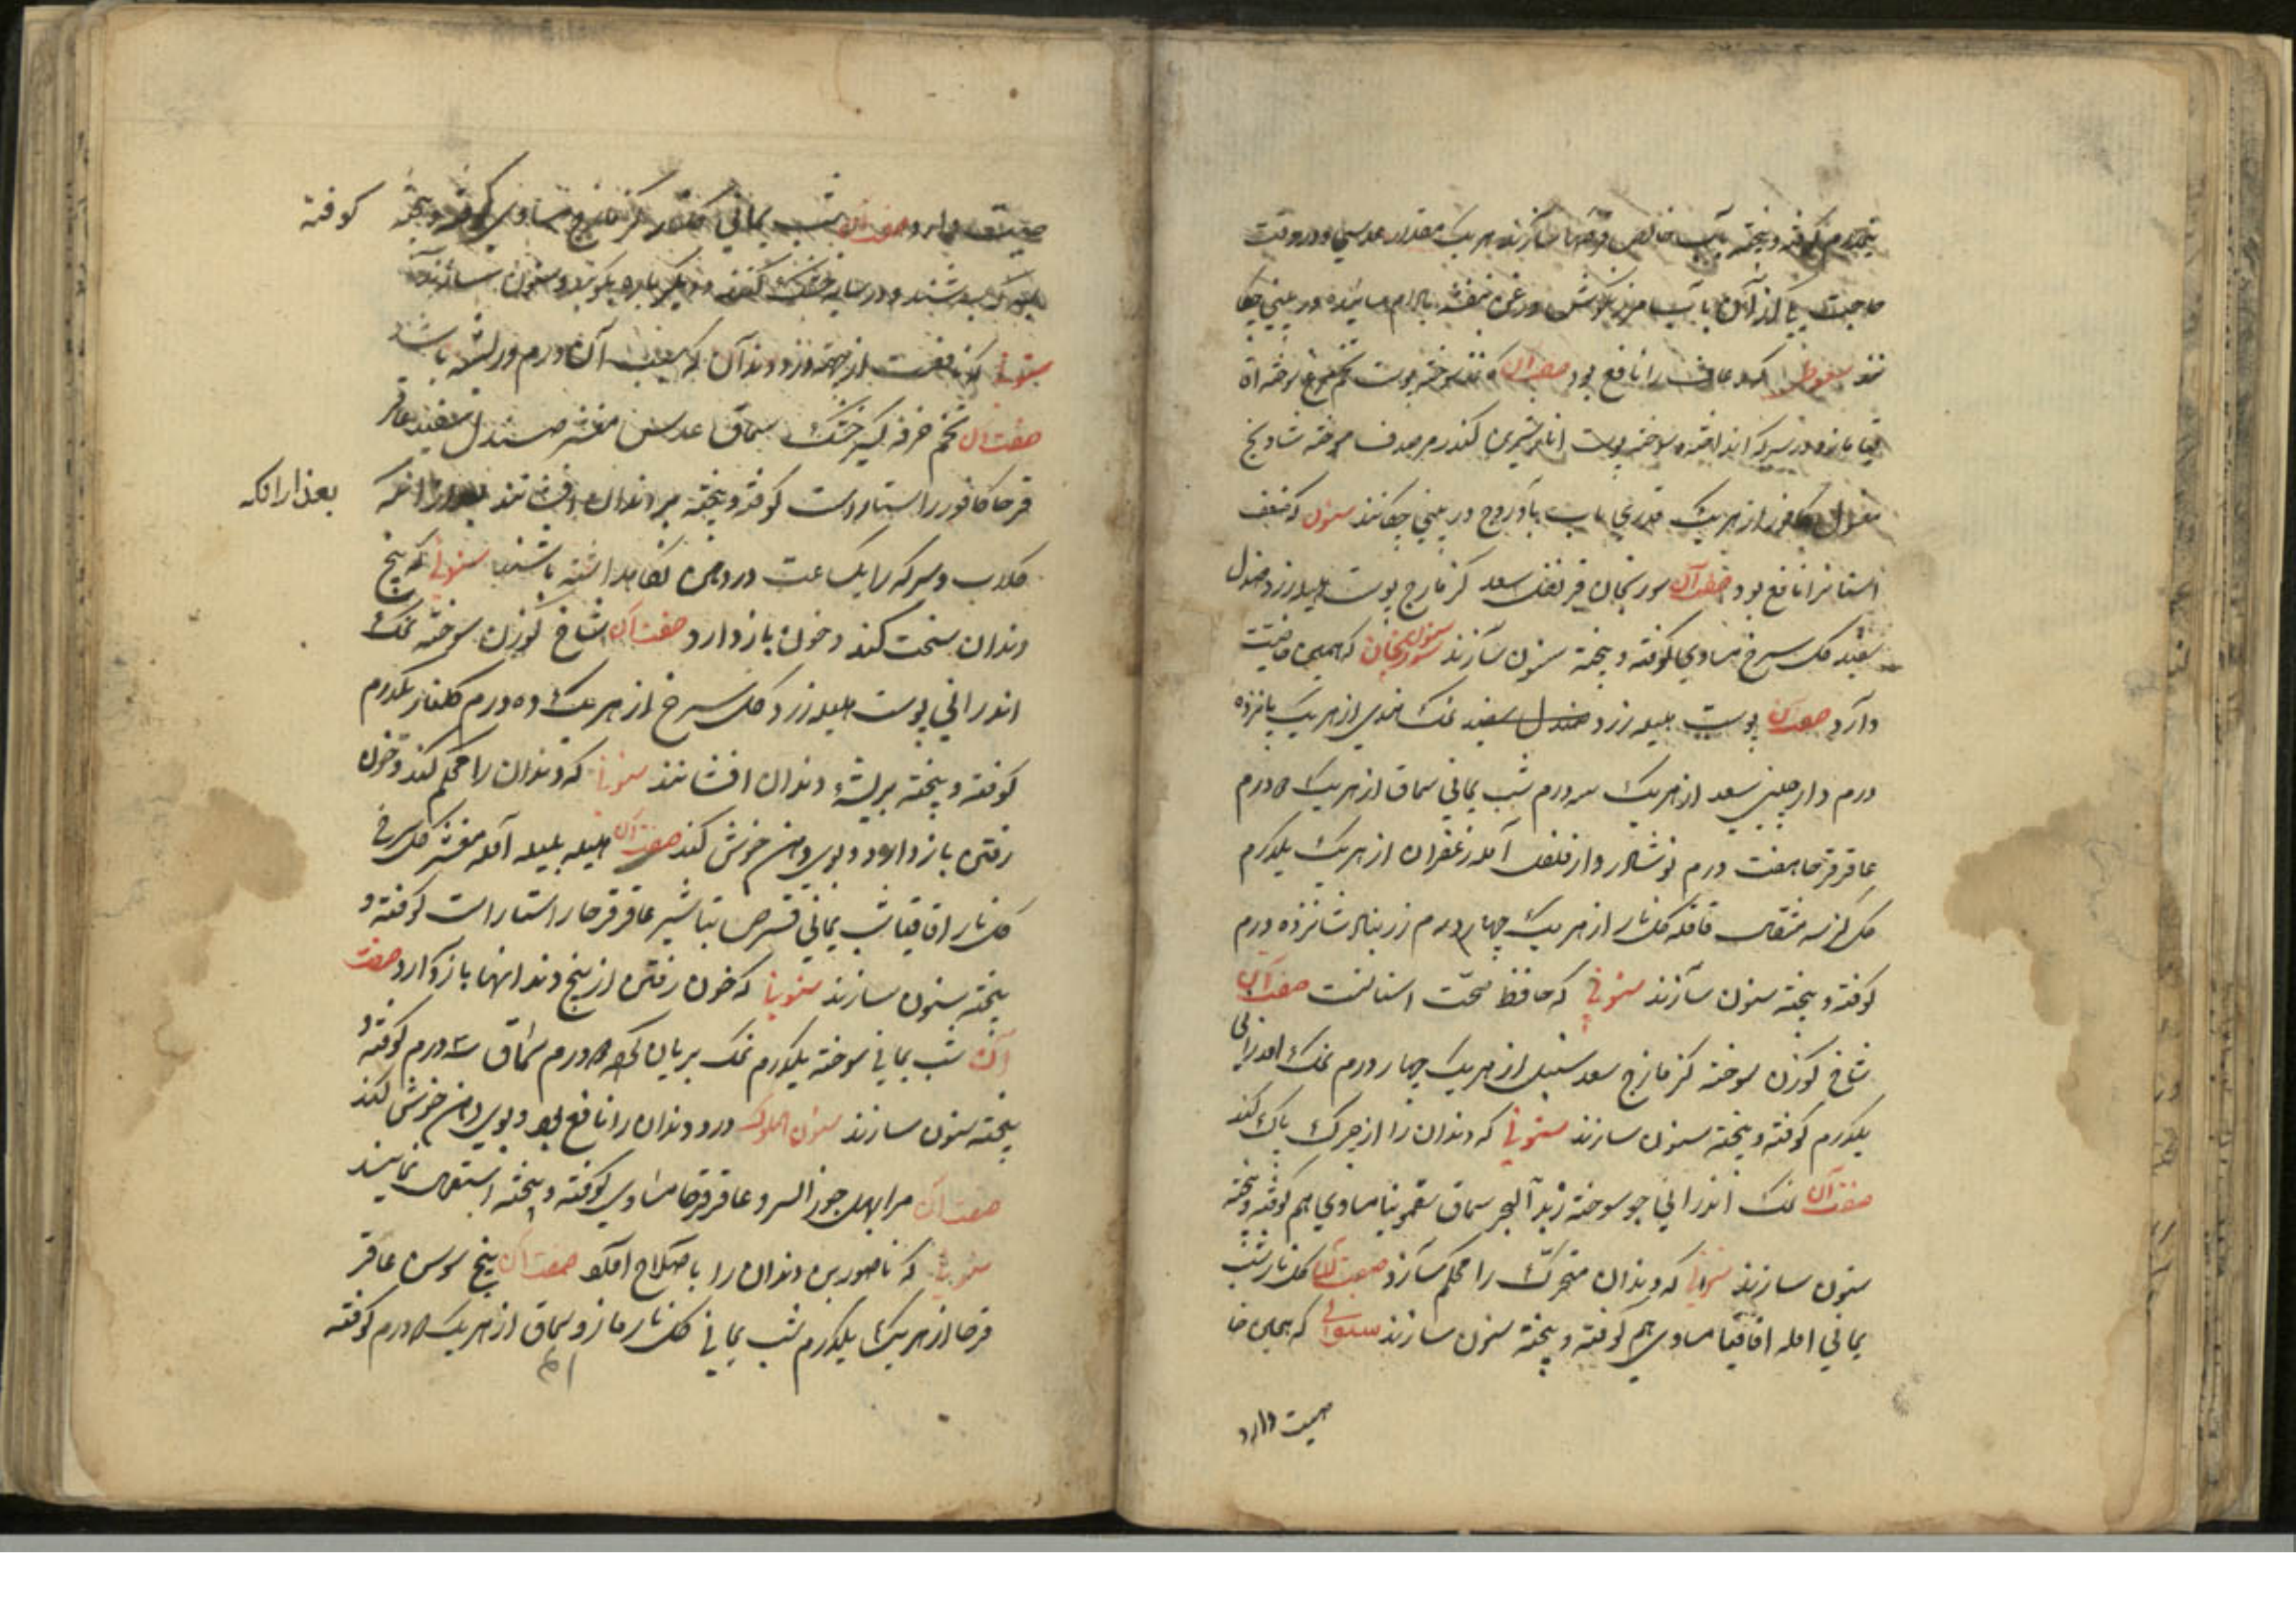 یکدرم کوفته و بیخته بآب خالص قرصها سازند هر یک مقدار عدسی و در وقت
حاجت یکی از آن بآب مرزنکوش و روغن بنفشه بادام سائیده در بینی چکا
نند سعوطی که رعاف را نافع بود صفت آن کاغذ سوخته پوست تخم مرغ سوخته
مازو در سرکه انداخته و سوخته پوست انار شیرین کندر مر صدف سوخته شادنج
مغسول کافور از هریک قدری بآب بادروج در بینی چکانند سنون که ضعف
اسنانرا نافع بود صفت آن سورنجان قرنفل سعد کزمازج پوست هلیله زرد صندل
سفید کل سرخ مساوی کوفته و بیخته سنون سازند سنون سورنجان که همین خاصیت
دارد صفت آن پوست هلیله زرد صندل سفید نمک هندی از هریک پانزده
درم دارچینی سعد از هریک سه درم شب یمانی سماق از هریک ۵ درم
عاقرقرحا هفت درم نوشادر دارفلفل آمله زعفران از هریک یکدرم
مثقال قاقله کل نار از هریک چهار درم زرنباد شانزده درم
کوفته و بیخته سنون سازند سنونی که حافظ صحت اسنانست صفت آن
شاخ کوزن سوخته کزمازج سعد سنبل از هریک چهار درم نمک اندرانی
یکدرم کوفته و بیخته سنون سازند سنونی که دندان را از چرک پاک کند
صفت آن نمک اندرانی جو سوخته زبد البحر سماق سقمونیا مساوی هم کوفته و بیخته
سنون سازند سنونی که دندان متحرک را محکم سازد صفت آن کل نار شب
یمانی آمله اقاقیا مساوی هم کوفته و بیخته سنون سازند سنونی که همین خا
صیت دارد
صیت دارد صفت آن شب یمانی کزمازج مساوی کوفته و بیخته کوفته
بسرکه بسرشند و در سایه خشک کنند و دیگر باره بکوبند و سنون سازند
سنونی که نافعست از جهة درد دندان که سبب آن ورم لثه باشد
صفت آن تخم خرفه کشنیز خشک سماق عدس مقشر صندل سفید عاقر
قرحا کافور راستا راست کوفته و بیخته بر دندان افشانند بعد از آنکه بعد از آنکه
کلاب و سرکه را یک ساعت در دهن نکاهداشته باشند سنونی که بیخ
دندان سخت کند و خون باز دارد صفت آن شاخ کوزن سوخته نمک
اندرانی پوست هلیله زرد کل سرخ از هریک ده درم کلنار یکدرم
کوفته و بیخته بر لثه دندان افشانند سنونی که دندان را محکم کند و خون
رفتن باز دارد و بوی دهن خوش کند صفت آن هلیله بلیله آمله مقشر کل سرخ
کل نار اقاقیا شب یمانی قرص تباشیر عاقرقرحا راستا راست کوفته و
بیخته سنون سازند سنونی که خون رفتن از بیخ دندانها باز دارد صفت
آن شب یمانی سوخته یکدرم نمک بریان کرده ۵ درم سماق سه درم کوفته و
بیخته سنون سازند سنون الملوک درد دندان را نافع بود و بوی دهن خوش کند
صفت آن مر ابهل جوز السرو عاقرقرحا مساوی کوفته و بیخته استعمال نمایند
سنونی که ناصور بن دندان را باصلاح آورد صفت آن بیخ سوسن عاقر
قرحا از هریک یکدرم شب یمانی کل نار مازو سماق از هریک ۵ درم کوفته